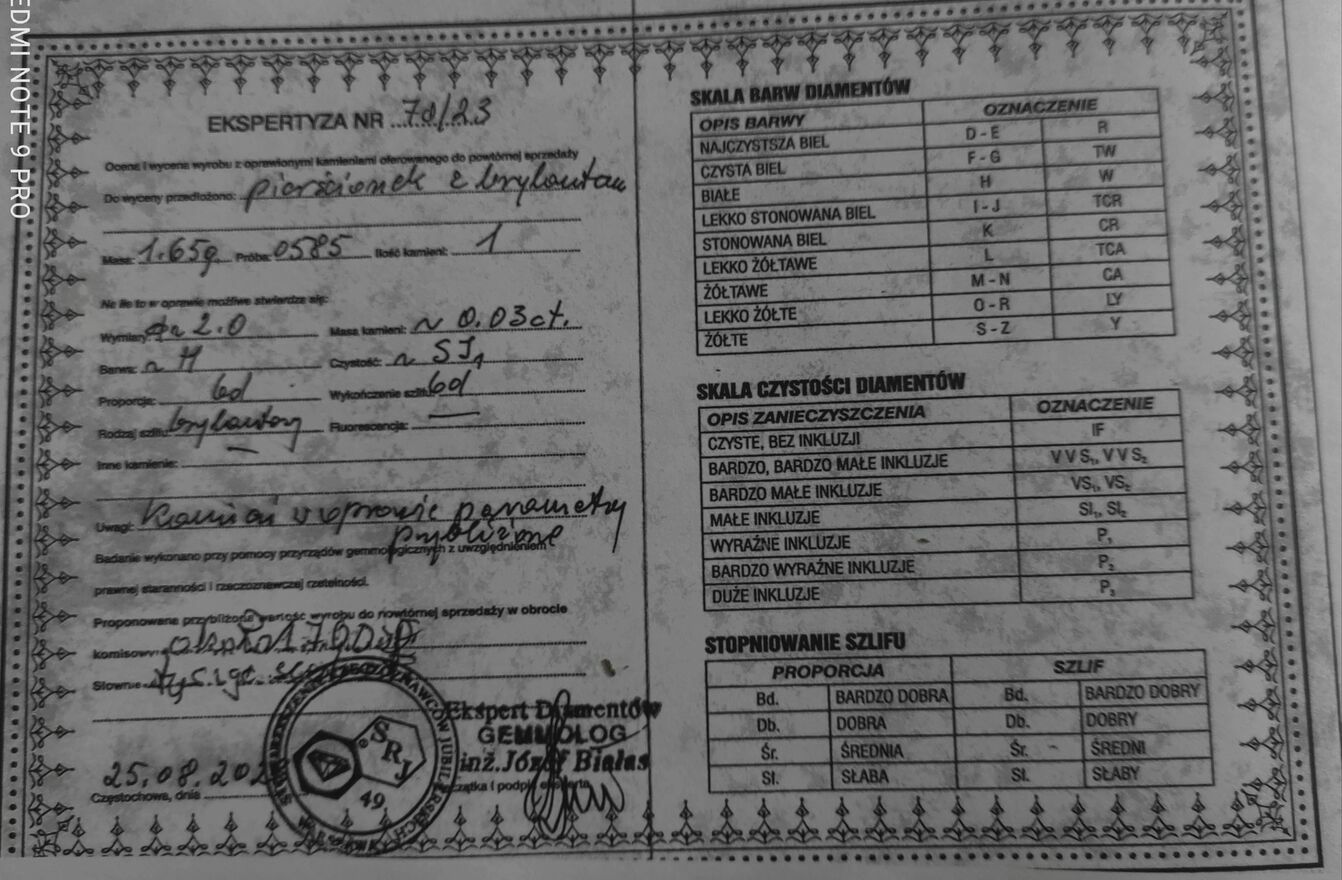 REDMI NOTE 9 PRO
EKSPERTYZA NR 70/23
Ocena i wycena wyrobu z oprawionymi kamieniami oferowanego do powtórnej sprzedaży
Do wyceny przedłożono: pierścionek z brylantem
Masa: 1.65g Próba: 0585 Ilość kamieni: 1
Na ile to w oprawie możliwe stwierdza się:
Wymiary: 2.0 Masa kamieni: ~ 0.03 ct.
Barwa: ~ H Czystość: ~ SI₁
Proporcja: bd Wykończenie szlifu: bd
Rodzaj szlifu: brylantowy Fluorescencja: —
Inne kamienie: —
Uwagi: Kamień w oprawie parametry
przybliżone
Badanie wykonano przy pomocy przyrządów gemmologicznych z uwzględnieniem
prawnej staranności i rzeczoznawczej rzetelności.
Proponowana przybliżona wartość wyrobu do powtórnej sprzedaży w obrocie
komisowym
Słownie
25.08.202
Częstochowa, dnia
SRJ
49
Ekspert Diamentów
GEMMOLOG
inż. Józef Białas
SKALA BARW DIAMENTÓW
OPIS BARWY OZNACZENIE
NAJCZYSTSZA BIEL D - E R
CZYSTA BIEL F - G TW
BIAŁE H W
LEKKO STONOWANA BIEL I - J TCR
STONOWANA BIEL K CR
LEKKO ŻÓŁTAWE L TCA
ŻÓŁTAWE M - N CA
LEKKO ŻÓŁTE O - R LY
ŻÓŁTE S - Z Y
SKALA CZYSTOŚCI DIAMENTÓW
OPIS ZANIECZYSZCZENIA OZNACZENIE
CZYSTE, BEZ INKLUZJI IF
BARDZO, BARDZO MAŁE INKLUZJE V V S₁, V V S₂
BARDZO MAŁE INKLUZJE VS₁, VS₂
MAŁE INKLUZJE SI₁, SI₂
WYRAŹNE INKLUZJE P₁
BARDZO WYRAŹNE INKLUZJE P₂
DUŻE INKLUZJE P₃
STOPNIOWANIE SZLIFU
PROPORCJA SZLIF
Bd. BARDZO DOBRA Bd. BARDZO DOBRY
Db. DOBRA Db. DOBRY
Śr. ŚREDNIA Śr. ŚREDNI
Sł. SŁABA Sł. SŁABY